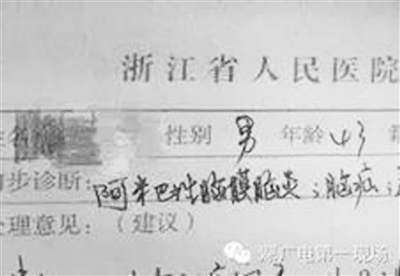 浙江省人民医院
性别 男 年龄 43
步诊断：阿米巴性脑膜脑炎；脑疝；
处理意见：（建议）
源广电第一现场